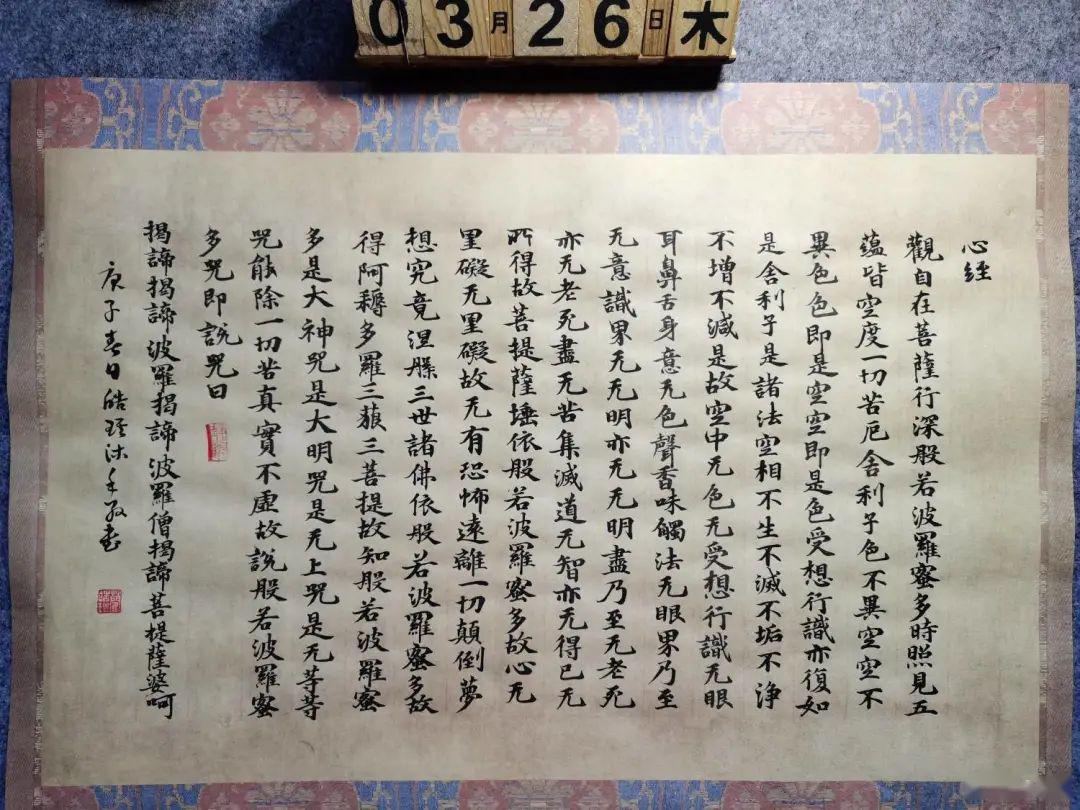 03月26日木
心經
觀自在菩薩行深般若波羅蜜多時照見五
蘊皆空度一切苦厄舍利子色不異空空不
異色色即是空空即是色受想行識亦復如
是舍利子是諸法空相不生不滅不垢不浄
不增不減是故空中无色无受想行識无眼
耳鼻舌身意无色聲香味觸法无眼界乃至
无意識界无无明亦无无明盡乃至无老死
亦无老死盡无苦集滅道无智亦无得已无
所得故菩提薩埵依般若波羅蜜多故心无
罣礙无罣礙故无有恐怖遠離一切顛倒夢
想究竟涅槃三世諸佛依般若波羅蜜多故
得阿耨多羅三藐三菩提故知般若波羅蜜
多是大神咒是大明咒是无上咒是无等等
咒能除一切苦真實不虛故說般若波羅蜜
多咒即說咒曰
揭諦揭諦波羅揭諦波羅僧揭諦菩提薩婆呵
庚子春日皓沐手敬書